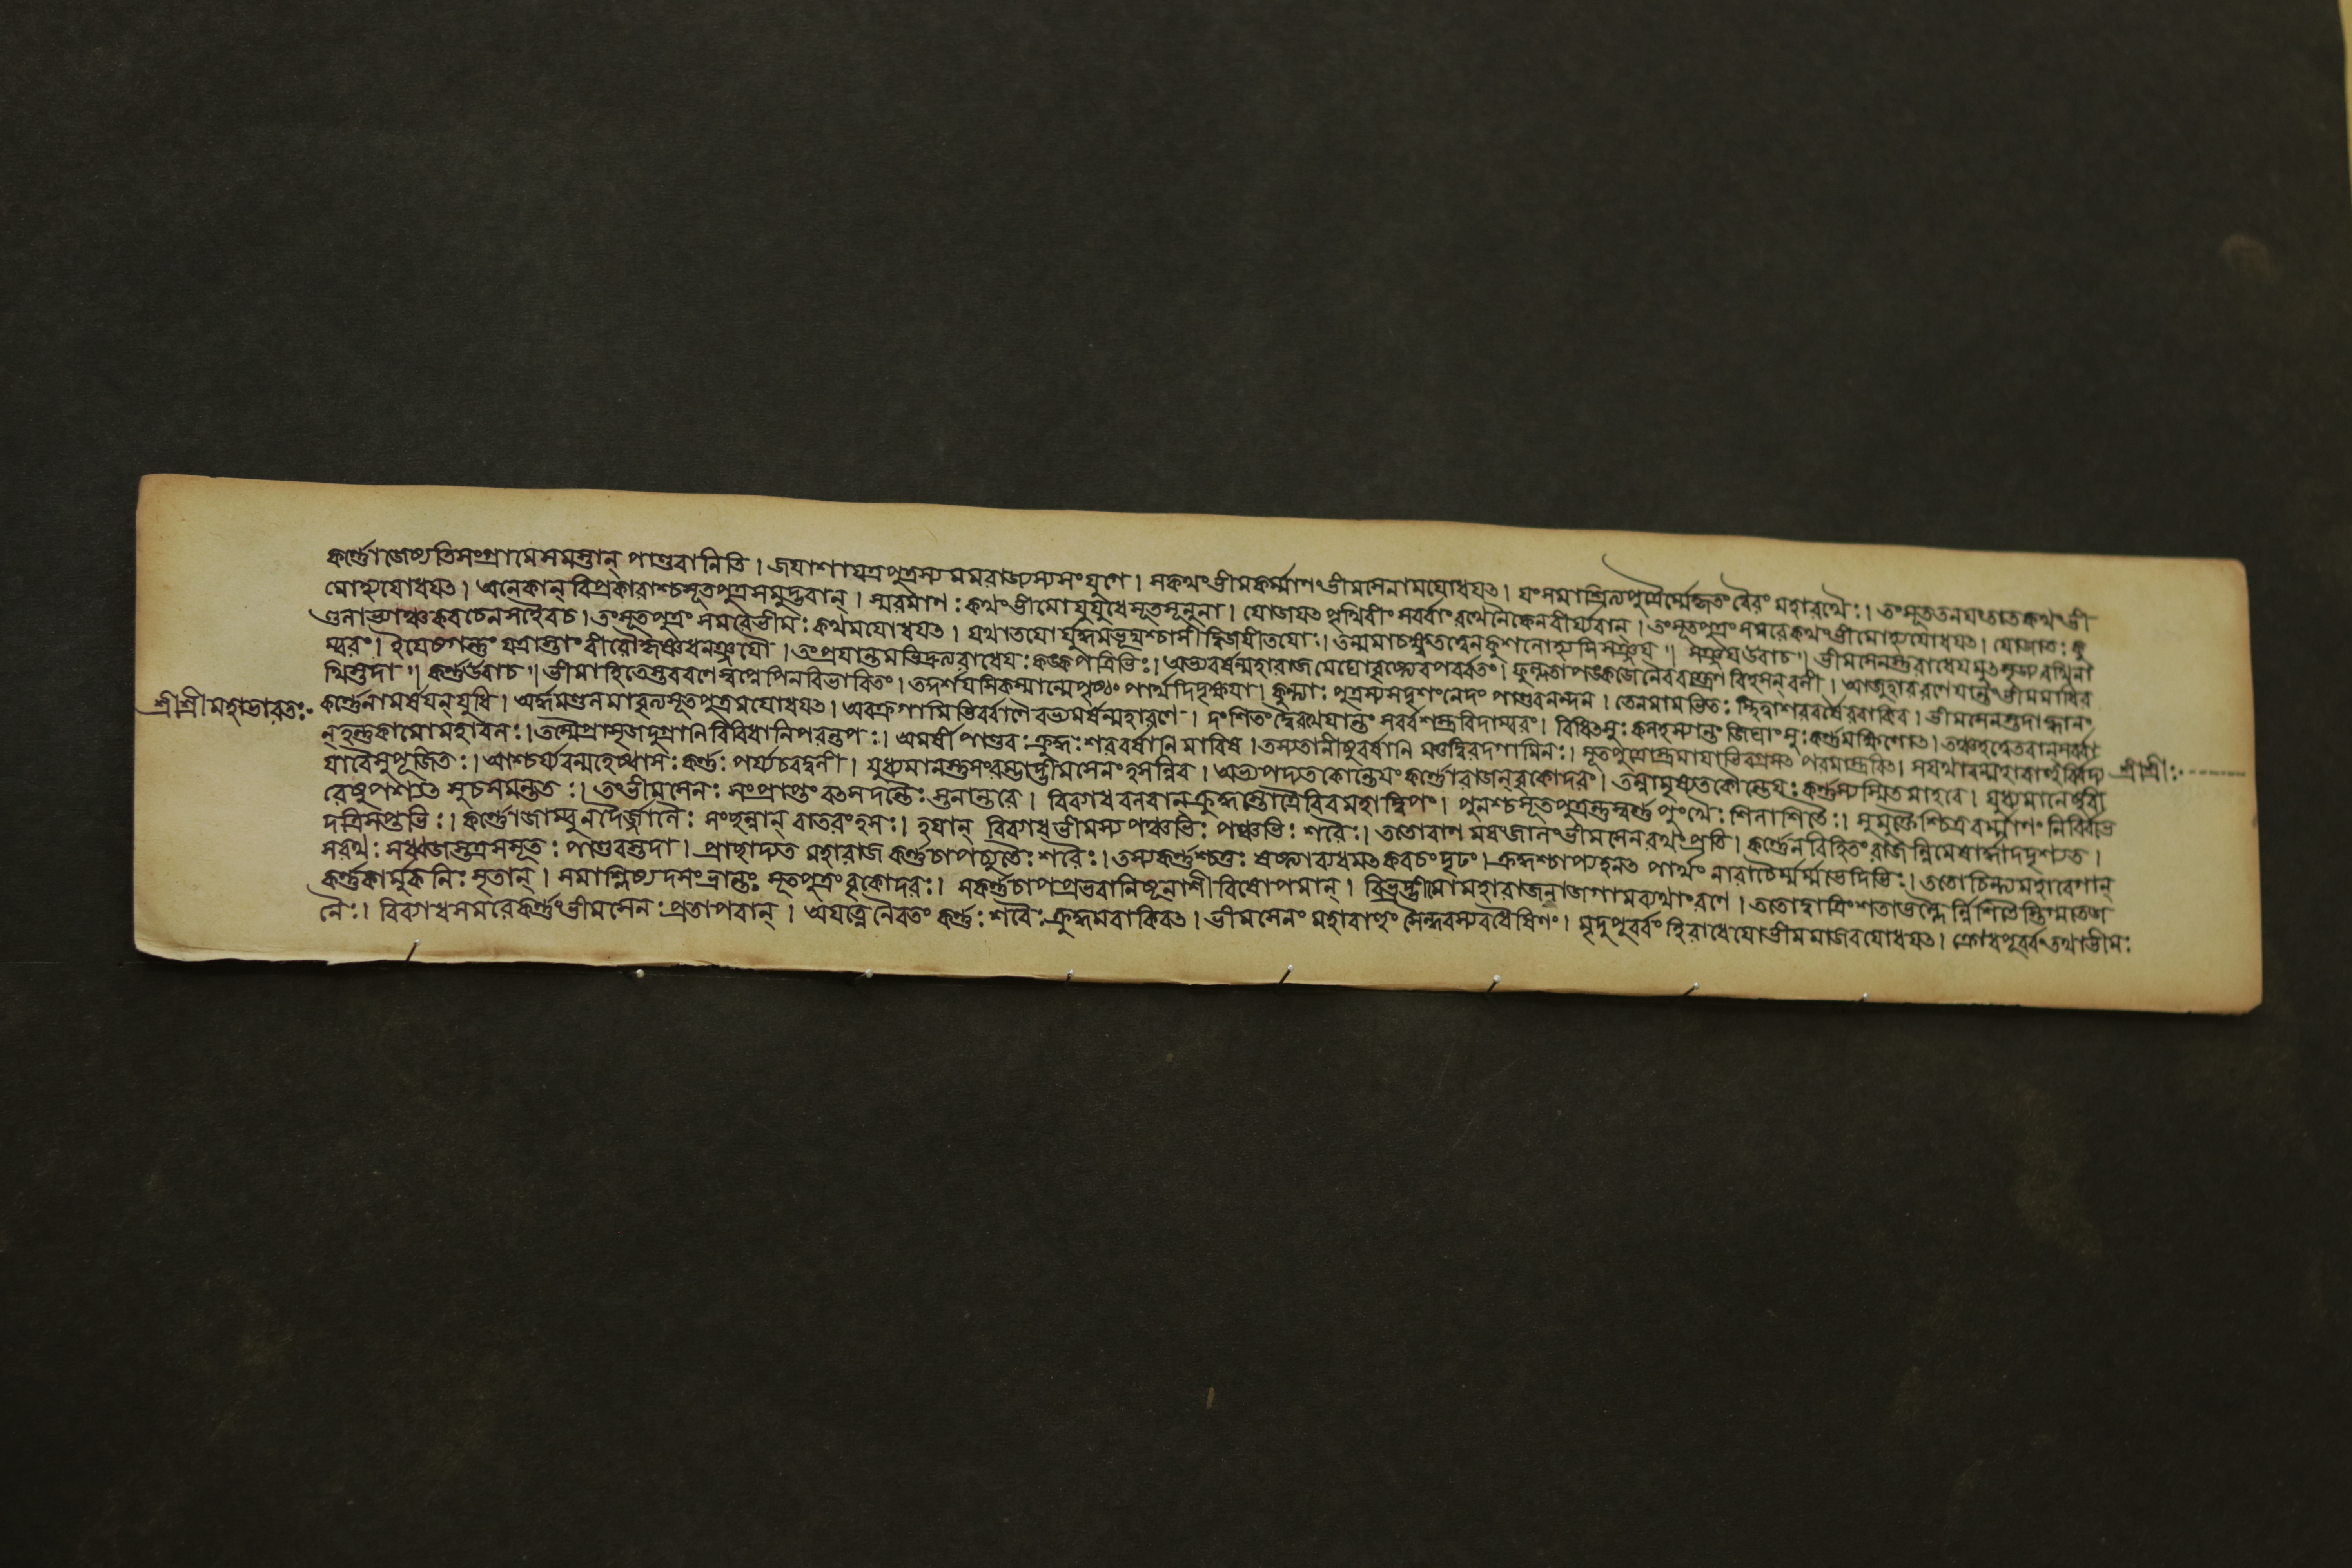 কর্ণ্ণোজেষ্যতিসংগ্রামেসমস্তান্ পাণ্ডবানিতি। জযাশাযত্রপুত্রস্য মমরাজ্যস্যসংযুগে। সকথংভীমকর্ম্মাণংভীমসেনামযোধযৎ। যংসমাশ্রিত্যপুত্রৈর্ম্মেকৃতংবৈরং মহারথৈঃ। তংসূততনযংতাতকথংভী
মোহ্যযোধযৎ। অনেকান্ বিপ্রকারাংশ্চসূতপুত্রসমুদ্ভবান্। স্মরমাণঃকথংভীমোযুযুধেসূতসূনুনা। যোজযৎপৃথিবীংসর্ব্বাংরথেনৈকেনবীর্য্যবান্। তংসূতপুত্রংসমরেকথংভীমোহ্যযোধযৎ। যোজাতঃকু
ণ্ডলাভ্যাঞ্চকবচেনসহৈবচ। তংসূতপুত্রংসমরেভীমঃকথমযোধযৎ। যথাতযোর্যুদ্ধমভূদ্যশ্চাসীদ্বিজযীতযোঃ। তন্মমাচক্ষ্বতত্ত্বেনকুশলোহ্যসিসঞ্জয॥ সঞ্জযউবাচ॥ ভীমসেনস্তুরাধেযমুৎসৃজ্যরথিনা
ম্বরং। ইযেষগন্তুং যত্রাস্তাংবীরৌকৃষ্ণধনঞ্জযৌ। তংপ্রযান্তমভিদ্রুত্যরাধেযঃকঙ্কপত্রিভিঃ। অভ্যবর্ষন্মহারাজমেঘোবৃষ্ট্যেবপর্ব্বতং। ফুল্লতাপঙ্কজেনৈববক্ত্রেণবিহসন্ বলী। আজুহাবরণেযান্তংভীমমাধির
থিস্তদা॥ কর্ণ্ণউবাচ॥ ভীমাহিতৈস্তবরণেস্বপ্নেপিনবিভাবিতং। তদ্দর্শযসিকস্মান্মেপৃষ্ঠং পার্থদিদৃক্ষযা। কুন্ত্যাঃপুত্রস্যসদৃশংনেদং পাণ্ডবনন্দন। তেনমামভিতঃস্থিত্বাশরবর্ষৈরবাকির। ভীমসেনস্তদাহ্বানং
শ্রীশ্রীমহাভারতঃ- কর্ণ্ণেনামর্ষযন্ যুধি। অর্দ্ধমণ্ডলমাবৃত্যসূতপুত্রমযোধযৎ। অবক্রগামিভির্বাণৈরভ্যবর্ষন্মহারণে। দংশিতংদ্বৈরথেযান্তং সর্ব্বশস্ত্রবিদাম্বরং। বিধিৎসুঃকলহস্যান্তং জিঘাংসুঃকর্ণ্ণমক্ষিণোৎ। তঞ্চহত্বেতরান্ সর্ব্বা
ন্ হন্তুকামোমহাবলঃ। তস্মৈপ্রাসৃজদুগ্রাণিবিবিধানিপরন্তপঃ। অমর্ষীপাণ্ডবঃক্রুদ্ধঃশরবর্ষাণিমারিষ। তস্যতানীষুবর্ষাণি মত্তদ্বিরদগামিনঃ। সূতপুত্রোস্ত্রমাযাভিরগ্রসৎ পরমাস্ত্রবিৎ। সযথাবন্মহাবাহুর্ব্বিদ্য শ্রীশ্রীঃ
যাবৈসুপূজিতঃ। আশ্চর্য্যবন্মহেষ্বাসঃকর্ণ্ণঃ পর্য্যচরদ্বলী। যুধ্যমানন্তুসংরম্ভাদ্ভীমসেনংহসন্নিব। অভ্যপদ্যতকৌন্তেযংকর্ণ্ণোরাজন্ বৃকোদরং। তন্নামৃষ্যতকৌন্তেযঃকর্ণ্ণস্যস্মিতমাহবে। যুধ্যমানেষুবী
রেষুপশ্যৎসুচসমন্ততঃ। তংভীমসেনঃ সংপ্রাপ্তংবৎসদন্তৈঃস্তনান্তরে। বিব্যাধবলবান্ ক্রুদ্ধস্তোত্রৈরিবমহাদ্বিপং। পুনশ্চসূতপুত্রন্তুস্বর্ণ্ণপুংখৈঃশিলাশিতৈঃ। সুমুক্তৈশ্চিত্রবর্ম্মাণং নির্ব্বিভে
দত্রিসপ্তভিঃ। কর্ণ্ণোজাম্বুনদৈর্জ্জালৈঃ সংছন্নান্ বাতরংহসঃ। হযান্ বিব্যাধভীমস্যপঞ্চভিঃ পঞ্চভিঃ শরৈঃ। ততোবাণমযংজালংভীমসেনরথংপ্রতি। কর্ণ্ণেনবিহিতংরাজন্নিমেষার্দ্ধাদদৃশ্যত।
সরথঃসধ্বজস্তত্রসসূতঃ পাণ্ডবস্তদা। প্রাছাদ্যত মহারাজকর্ণ্ণচাপচ্যুতৈঃশরৈঃ। তস্যকর্ণ্ণশ্চতুঃষষ্ঠ্যাব্যধমৎকবচংদৃঢং। ক্রুদ্ধশ্চাপ্যহনৎ পার্থং নারাচৈর্ম্মর্ম্মভেদিভিঃ। ততোচিন্ত্যমহাবেগান্
কর্ণ্ণকার্মুকনিঃসৃতান্। সমাশ্লিষ্যদসংভ্রান্তঃ সূতপুত্রংবৃকোদরঃ। সকর্ণ্ণচাপপ্রভবানিষূনাশীবিষোপমান্। বিভ্রদ্ভীমোমহারাজনজগামব্যথাংরণে। ততোদ্বাত্রিংশতাভল্লৈর্ন্নিশিতৈস্তিগ্মতেজ
নৈঃ। বিব্যাধসমরেকর্ণ্ণংভীমসেনঃপ্রতাপবান্। অযত্নেনৈবতংকর্ণ্ণঃশরৈঃক্রুদ্ধমবাকিরৎ। ভীমসেনংমহাবাহুংসৈন্ধবস্যবধৈষিণং। মৃদুপুর্ব্বংহিরাধেযোভীমমাজাবযোধযৎ। ক্রোধপূর্ব্বংতথাভীমঃ